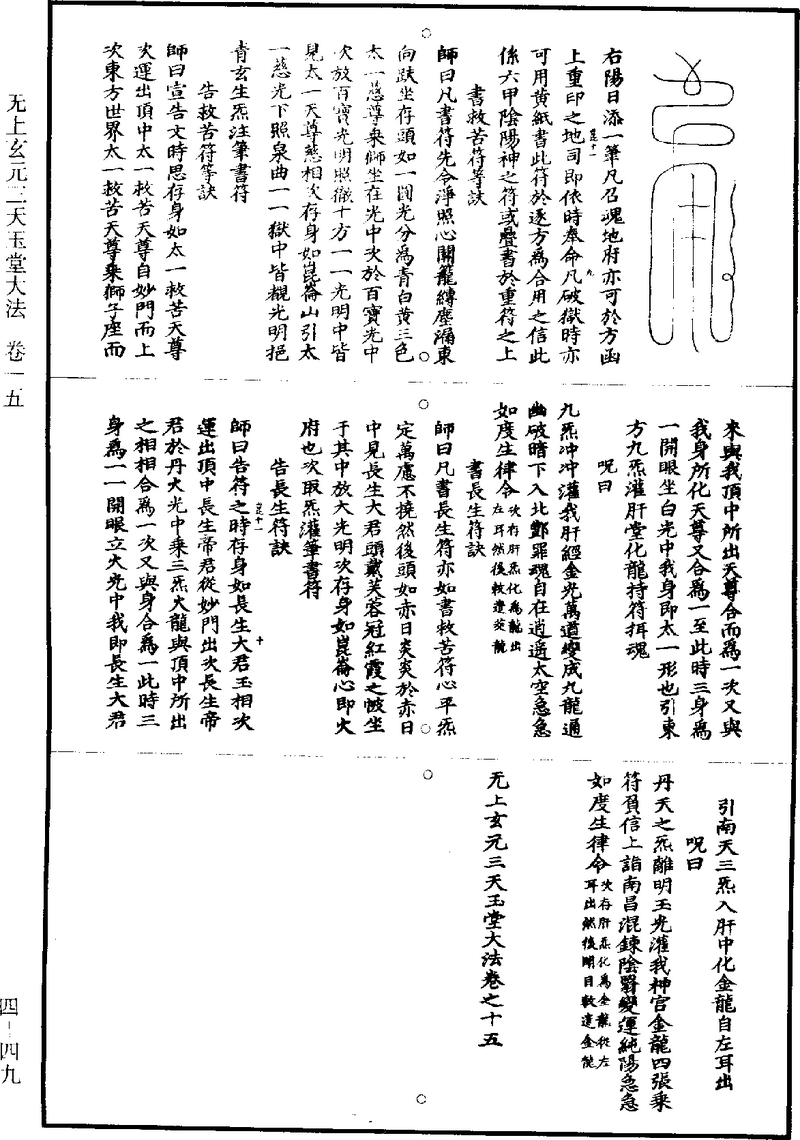 无上玄元三天玉堂大法 卷一五
右陽日添一筆凡召魂地府亦可於方函
上重印之地司即依時奉命凡破獄時亦
可用黄紙書此符於逐方為合用之信此
係六甲陰陽神之符或疊書於重符之上
書救苦符等訣
師曰凡書符先令淨照心關籠縛塵漏東
向趺坐存頭如一圓光分為青白黄三色
太一慈尊乘獅坐在光中次於百寶光中
次放百寶光明照徹十方一一光明中皆
見太一天尊慈相次存身如崑崙山引太
一慈光下照泉曲一一獄中皆覩光明挹
青玄生炁注筆書符
告救苦符等訣
師曰宣告文時思存身如太一救苦天尊
次運出頂中太一救苦天尊自妙門而上
次東方世界太一救苦天尊乘獅子座而
來與我頂中所出天尊合而為一次又與
我身所化天尊又合為一至此時三身為
一開眼坐白光中我身即太一形也引東
方九炁灌肝堂化龍持符揖魂
呪曰
九炁冲冲灌我肝經金光萬道變成九龍通
幽破暗下入北酆罪魂自在逍遥太空急急
如度生律令次存肝炁化為龍出
左耳然後敕遣茭龍
書長生符訣
師曰凡書長生符亦如書救苦符心平炁
定萬慮不撓然後頭如赤日炎炎於赤日
中見長生大君頭戴芙蓉冠紅霞之帔坐
于其中放大光明次存身如崑崙心即火
府也次取炁灌筆書符
告長生符訣
師曰告符之時存身如長生大君玉相次
運出頂中長生帝君從妙門出次長生帝
君於丹火光中乘三炁火龍與頂中所出
之相相合為一次又與身合為一此時三
身為一一開眼立火光中我即長生大君
引南天三炁入肝中化金龍自左耳出
呪曰
丹天之炁離明玉光灌我神宫金龍四張乘
符負信上詣南昌混鍊陰翳變運純陽急急
如度生律令次存肝炁化為金龍從左
耳出然後開目敕遣金龍
无上玄元三天玉堂大法卷之十五
四–四九